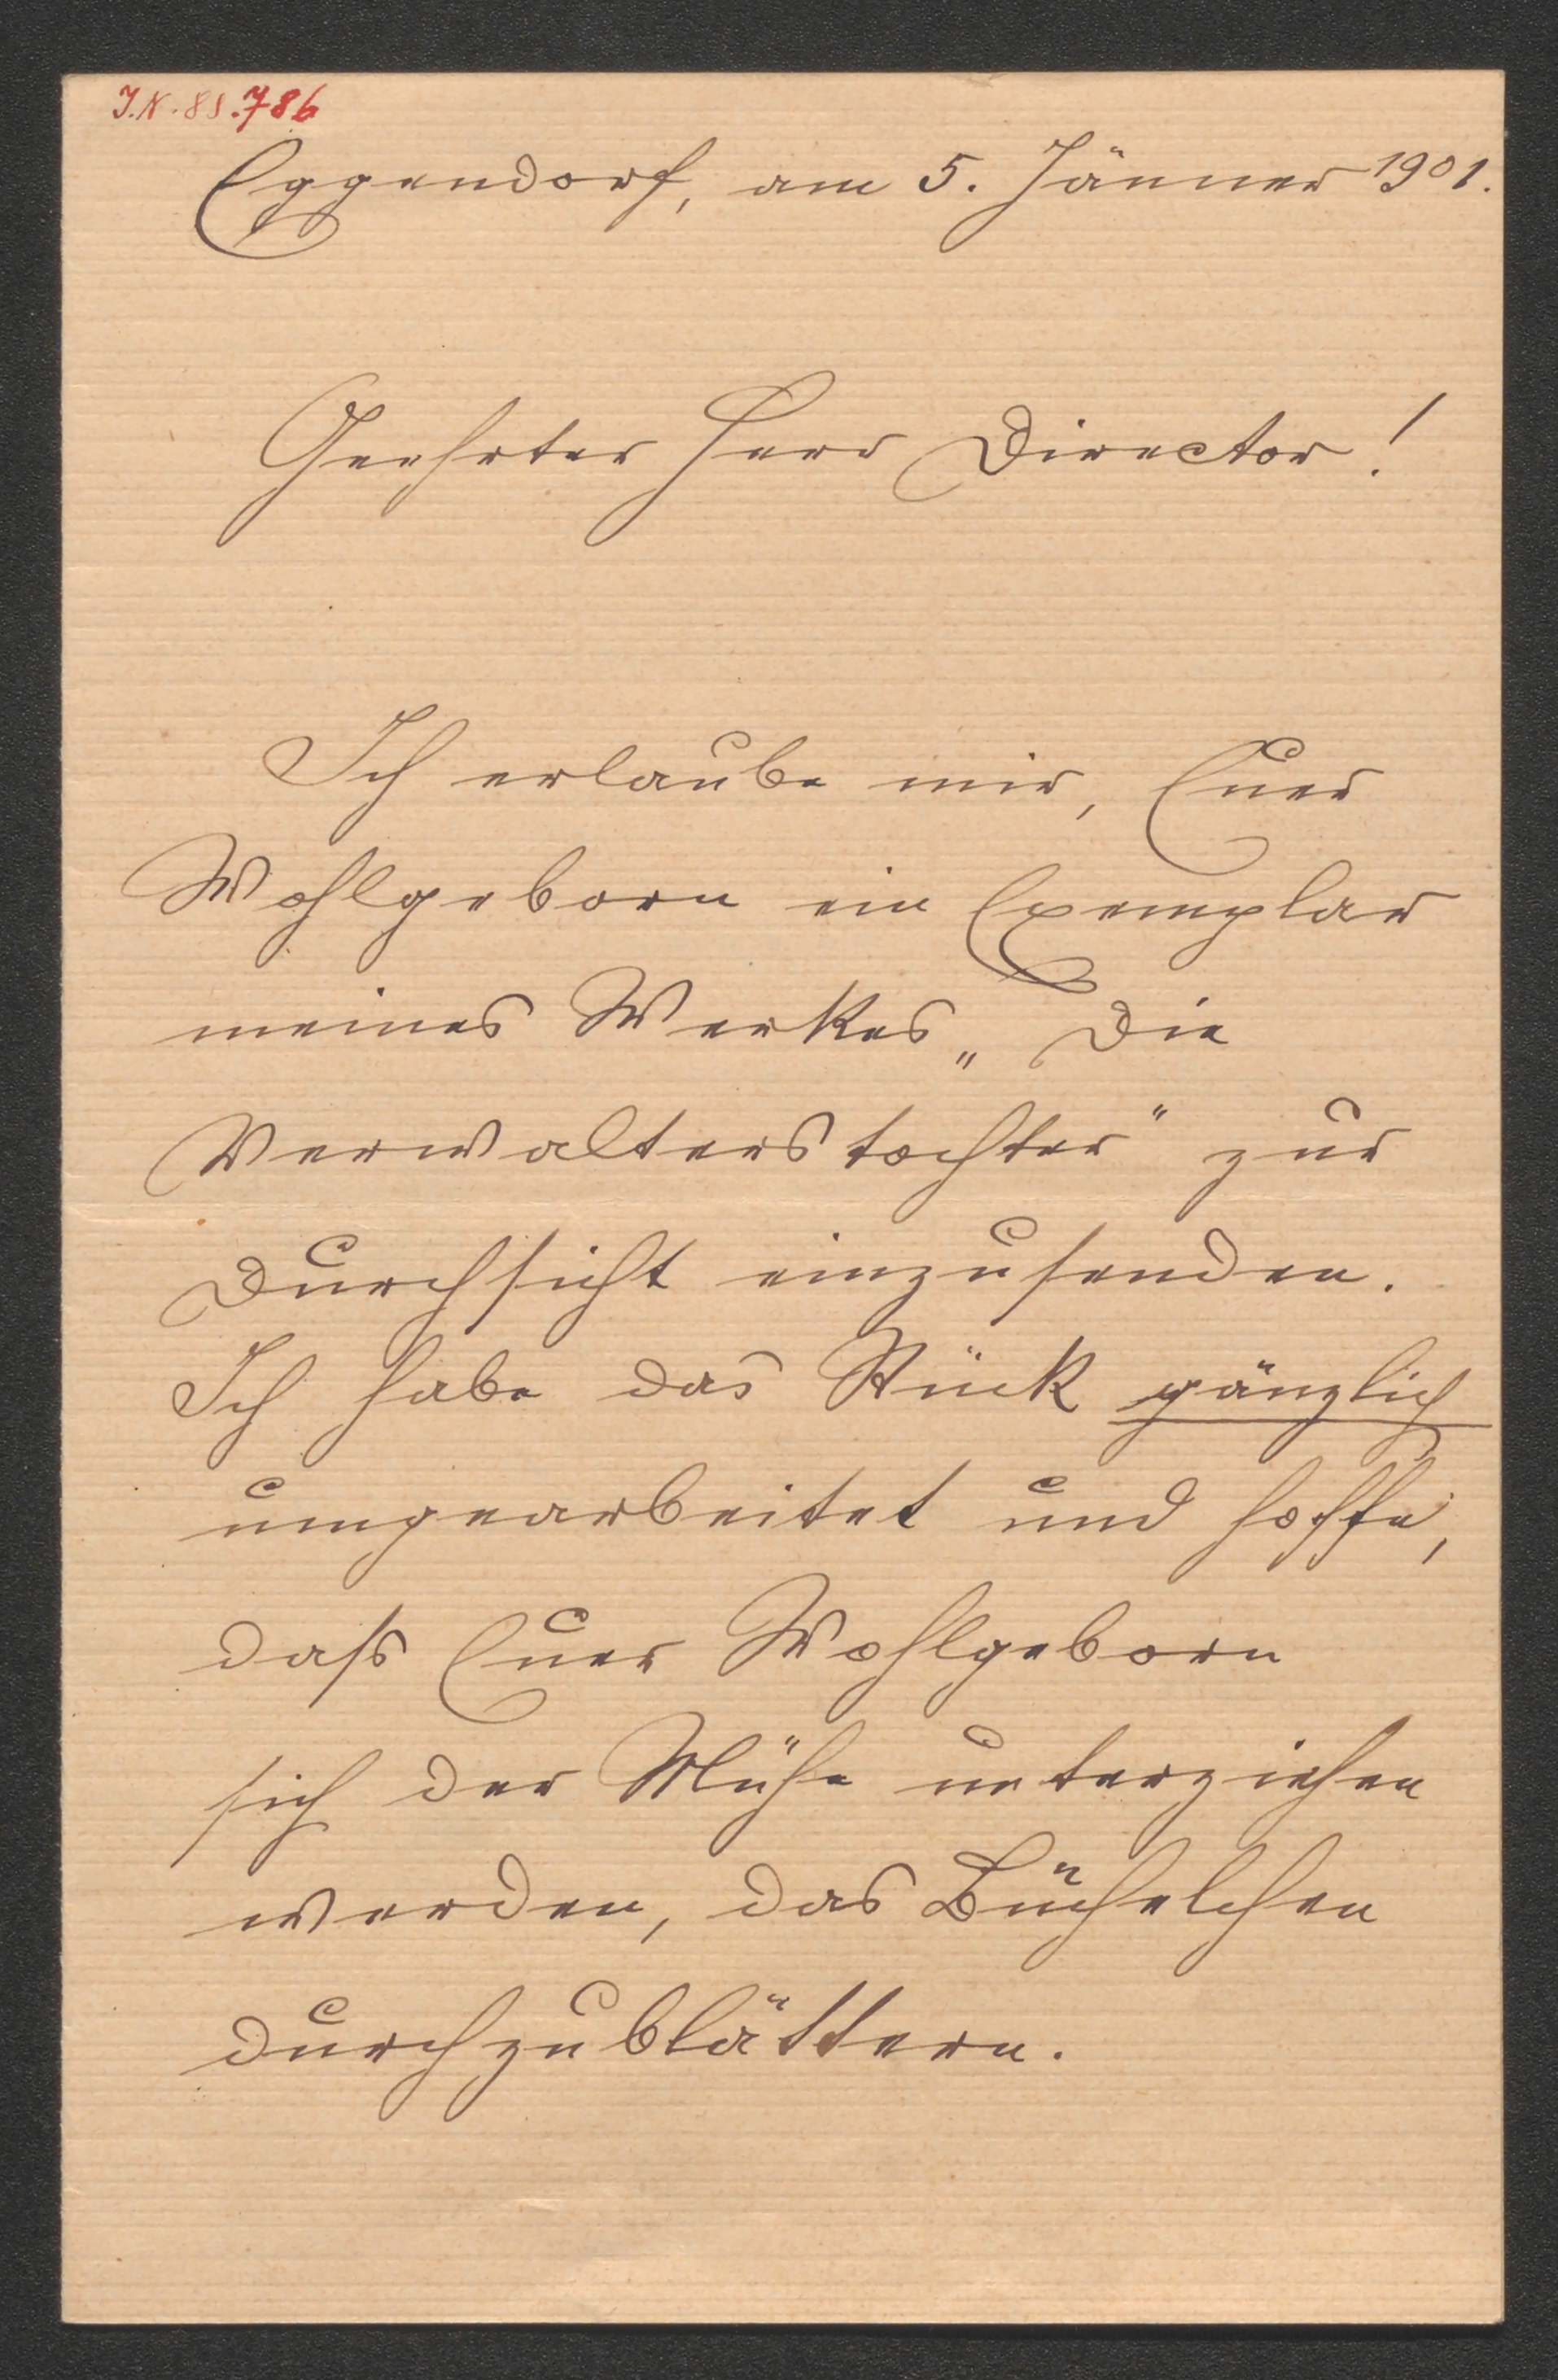 J.N. 88.786
Eggendorf, am 5. Jänner 1901.
Geehrter Herr Director!
Ich erlaube mir, Euer
Wohlgeborn ein Exemplar
meines Werkes „Die
Verwalterstochter“ zur
Durchsicht einzusenden.
Ich habe das Stück gänzlich
umgearbeitet und hoffe,
dass Euer Wohlgeborn
sich der Mühe unterziehen
werden, das Büchelchen
durchzublättern.